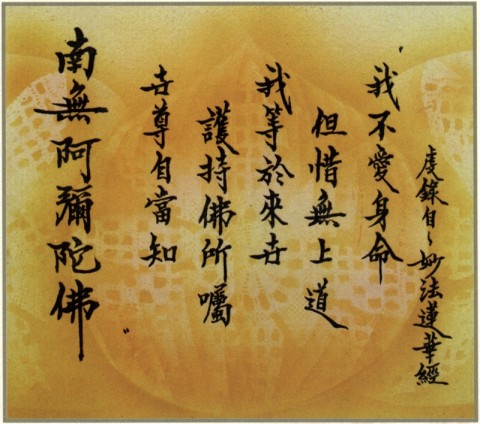 虔錄自、妙法蓮華經
我不愛身命
但惜無上道
我等於來世
護持佛所囑
世尊自當知
南無阿彌陀佛